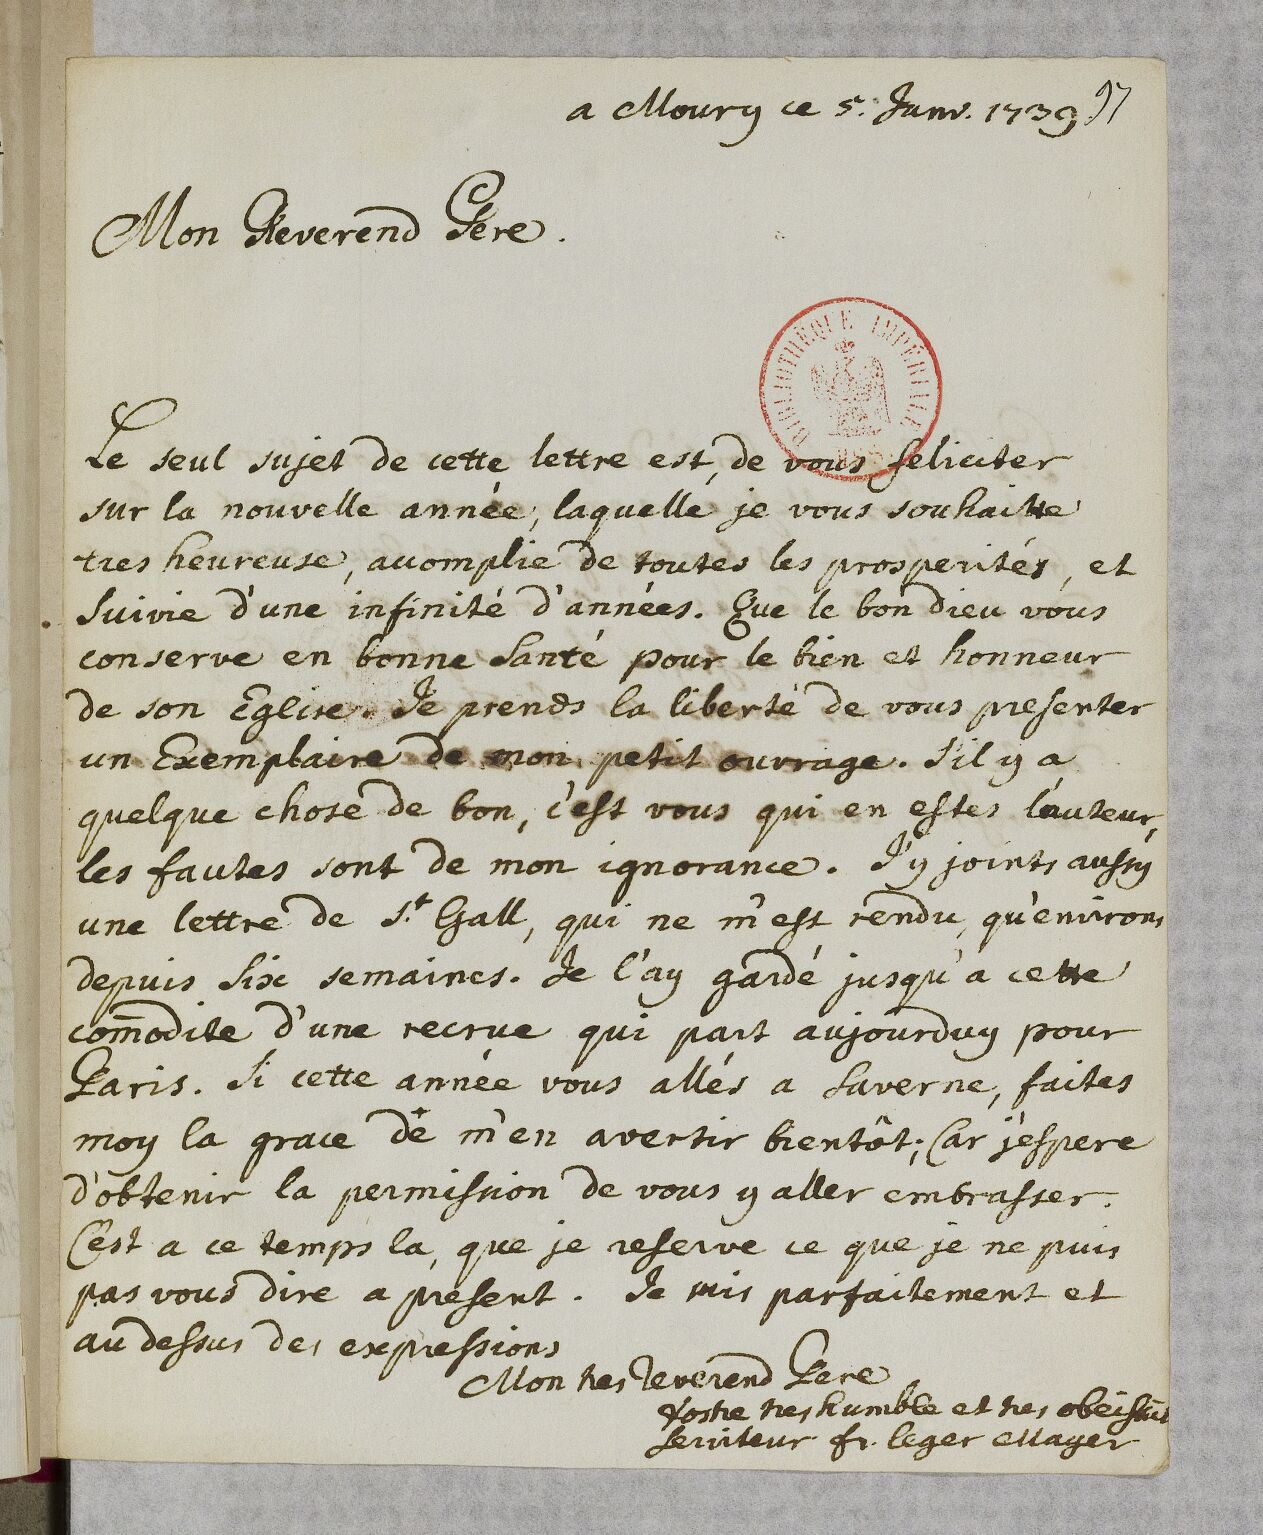 a Moury ce 5. Janv. 1739
97
Mon Reverend Pere.
BIBLIOTHÈQUE IMPÉRIALE
Le seul sujet de cette lettre est, de vous feliciter
sur la nouvelle année, laquelle je vous souhaitte
tres heureuse, accomplie de toutes les prosperités, et
suivie d'une infinité d'années. Que le bon dieu vous
conserve en bonne santé pour le bien et honneur
de son Eglise. Je prends la liberté de vous presenter
un Exemplaire de mon petit ouvrage. S'il y a
quelque chose de bon, c'est vous qui en estes l'auteur,
les fautes sont de mon ignorance. J'y joints aussy
une lettre de S.t Gall, qui ne m'est rendu, qu'environs
depuis six semaines. Je l'ay gardé jusqu'a cette
com̄odite d'une recrue qui part aujourduy pour
Paris. Si cette année vous allés a Saverne, faites
moy la grace de m'en avertir bientôt; Car j'espere
d'obtenir la permission de vous y aller embrasser.
C'est a ce temps la, que je reserve ce que je ne puis
pas vous dire a present. Je suis parfaitement et
au dessus des expressions
Mon tres Reverend Pere
Vostre tres humble et tres obeissant
serviteur fr. leger Mayer